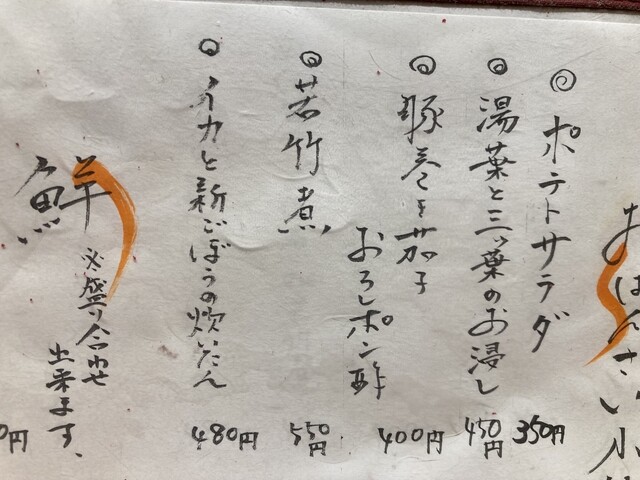 おばんざい小
◎ポテトサラダ 350円
◎湯葉と三ツ葉のお浸し 450円
◎豚巻き茄子
おろしポン酢 400円
◎若竹煮 550円
◎イカと新ごぼうの炊いたん 480円
鮮
※盛り合わせ
出来ます。
0円